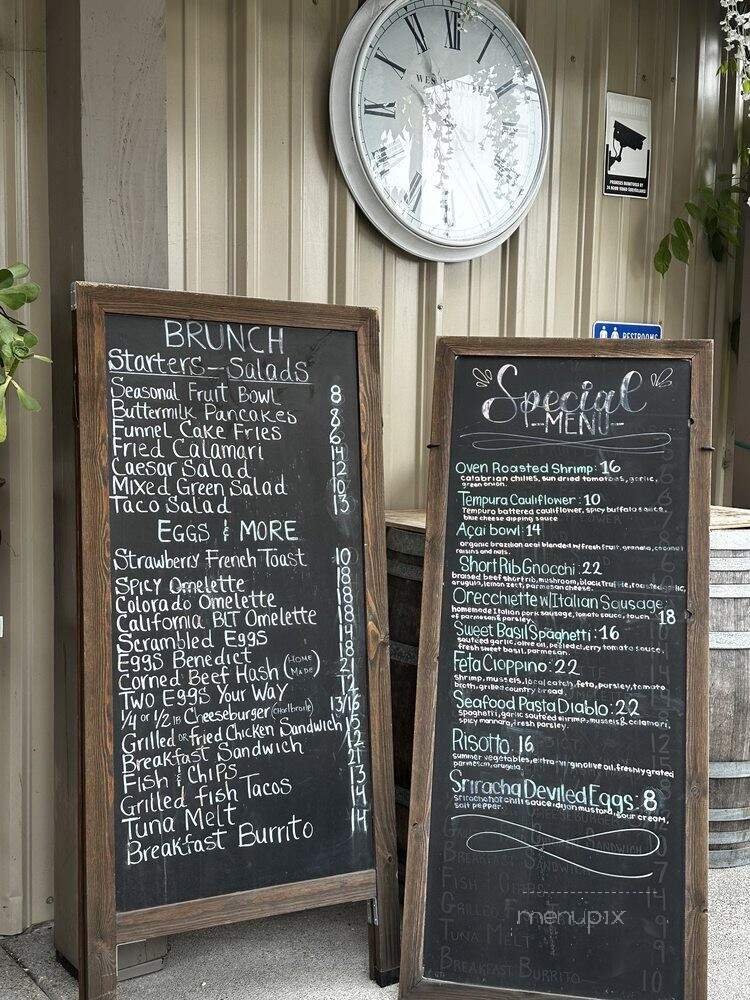 BRUNCH
Starters - Salads
Seasonal Fruit Bowl 8
Buttermilk Pancakes 8
Funnel Cake Fries 6
Fried Calamari 14
Caesar Salad 12
Mixed Green Salad 10
Taco Salad 13
EGGS & MORE
Strawberry French Toast 10
Spicy Omelette 18
Colorado Omelette 18
California BLT Omelette 18
Scrambled Eggs 14
Eggs Benedict 18
Corned Beef Hash (HOME MADE) 21
Two Eggs Your Way
1/4 or 1/2 lb Cheeseburger (Charbroile) 13/16
Grilled or fried Chicken Sandwich 15
Breakfast Sandwich 12
Fish & Chips 21
Grilled fish Tacos 13
Tuna Melt 14
Breakfast Burrito 14
PREMISES MONITORED BY
24 HOUR VIDEO SURVEILLANCE
RESTROOMS
Special
MENU
Oven Roasted Shrimp: 16
calabrian chilies, sun dried tomatoes, garlic,
green onion.
Tempura Cauliflower: 10
Tempura battered cauliflower, spicy buffalo sauce,
blue cheese dipping sauce
Açai bowl: 14
organic brazilian acai blended w/ fresh fruit, granola, coconut
raisins and nuts.
Short Rib Gnocchi: 22
braised beef short rib, mushroom, black truffle, roasted garlic,
arugula, lemon zest, parmesan, parsley.
Orecchiette w/ Italian Sausage: 18
homemade Italian pork sausage, tomato sauce, touch
of parmesan & parsley.
Sweet Basil Spaghetti: 16
sauteed garlic, olive oil, peeled cherry tomato sauce,
fresh sweet basil, parmesan.
Feta Cioppino: 22
shrimp, mussels, local catch, feta, parsley, tomato
broth, grilled country bread
Seafood Pasta Diablo: 22
spaghetti, garlic sauteed shrimp, mussels & calamari,
spicy marinara, fresh parsley.
Risotto: 16
summer vegetables, extra-virgin olive oil, freshly grated
parmesan, arugula.
Sriracha Devilled Eggs: 8
sriracha hot chili sauce, dijon mustard, sour cream,
salt pepper.
Breakfast Sandwich
Tuna Melt
Breakfast Burrito 10
menupix